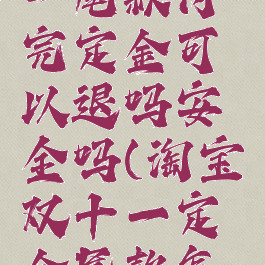 尾款付
完定金可
以退吗安
全吗(淘宝
双十一定
金尾款怎